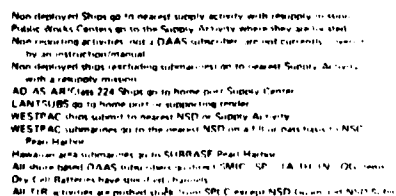 Non deployed Ships go to nearest supply activity with resupply mission
Public Works Centers go to the Supply Activity where they are located
Non reporting activities not a DAAS subscriber are not currently
by an instruction/manual
Non deployed ships (excluding submarines) go to nearest Supply Activity
with a resupply mission
AD AS AR Class 224 Ships go to home port Supply Center
LANTSUBS go to home port or supporting tender
WESTPAC ships submit to nearest NSD or Supply Activity
WESTPAC submarines go to the nearest NSD on a fill or pass basis to NSC
Pearl Harbor
Hawaiian area submarines go to SUBBASE Pearl Harbor
All shore based DAAS subscribers
Dry Cell Batteries have specified channels
All TIR activities are pushed stock from SPCC except NSD Guam and NSD